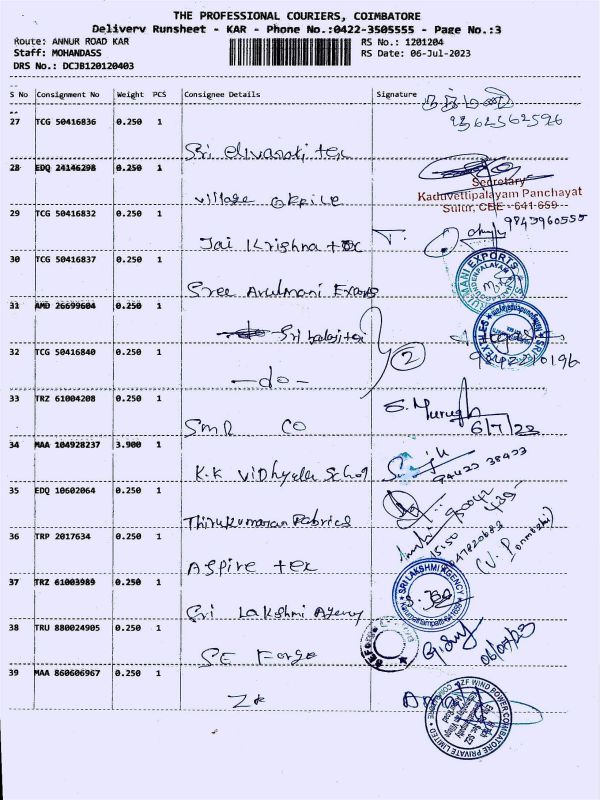 THE PROFESSIONAL COURIERS, COIMBATORE
Delivery Runsheet - KAR - Phone No.:0422-3505555 - Page No.:3
Route: ANNUR ROAD KAR RS No.: 1201204
Staff: MOHANDASS RS Date: 06-Jul-2023
DRS No.: DCJB120120403
S No Consignment No Weight PCS Consignee Details Signature
27 TCG 50416836 0.250 1
Sri
28 EDQ 24146298 0.250 1
village office
Secretary
Kaduvettipalayam Panchayat
Sulur, CBE - 641 659
29 TCG 50416832 0.250 1 9843960555
Jai Krishna tex
30 TCG 50416837 0.250 1
Sree Arulmani Exports
ARULMANI EXPORTS
31 AMD 26699604 0.250 1
Sri balaji tex
32 TCG 50416840 0.250 1 2
-do-
33 TRZ 61004208 0.250 1 S. Murugh
SMR CO 6/7/23
34 MAA 104928237 3.900 1
K.K Vidhyala School 94423 38423
35 EDQ 10602064 0.250 1
Thirukumaran Fabrics
36 TRP 2017634 0.250 1
Aspire tex
37 TRZ 61003989 0.250 1
SRI LAKSHMI AGENCY
Sri Lakshmi Agency
38 TRU 880024905 0.250 1
SE Forge 06/07/23
39 MAA 860606967 0.250 1
ZF
ZF WIND POWER COIMBATORE PRIVATE LIMITED